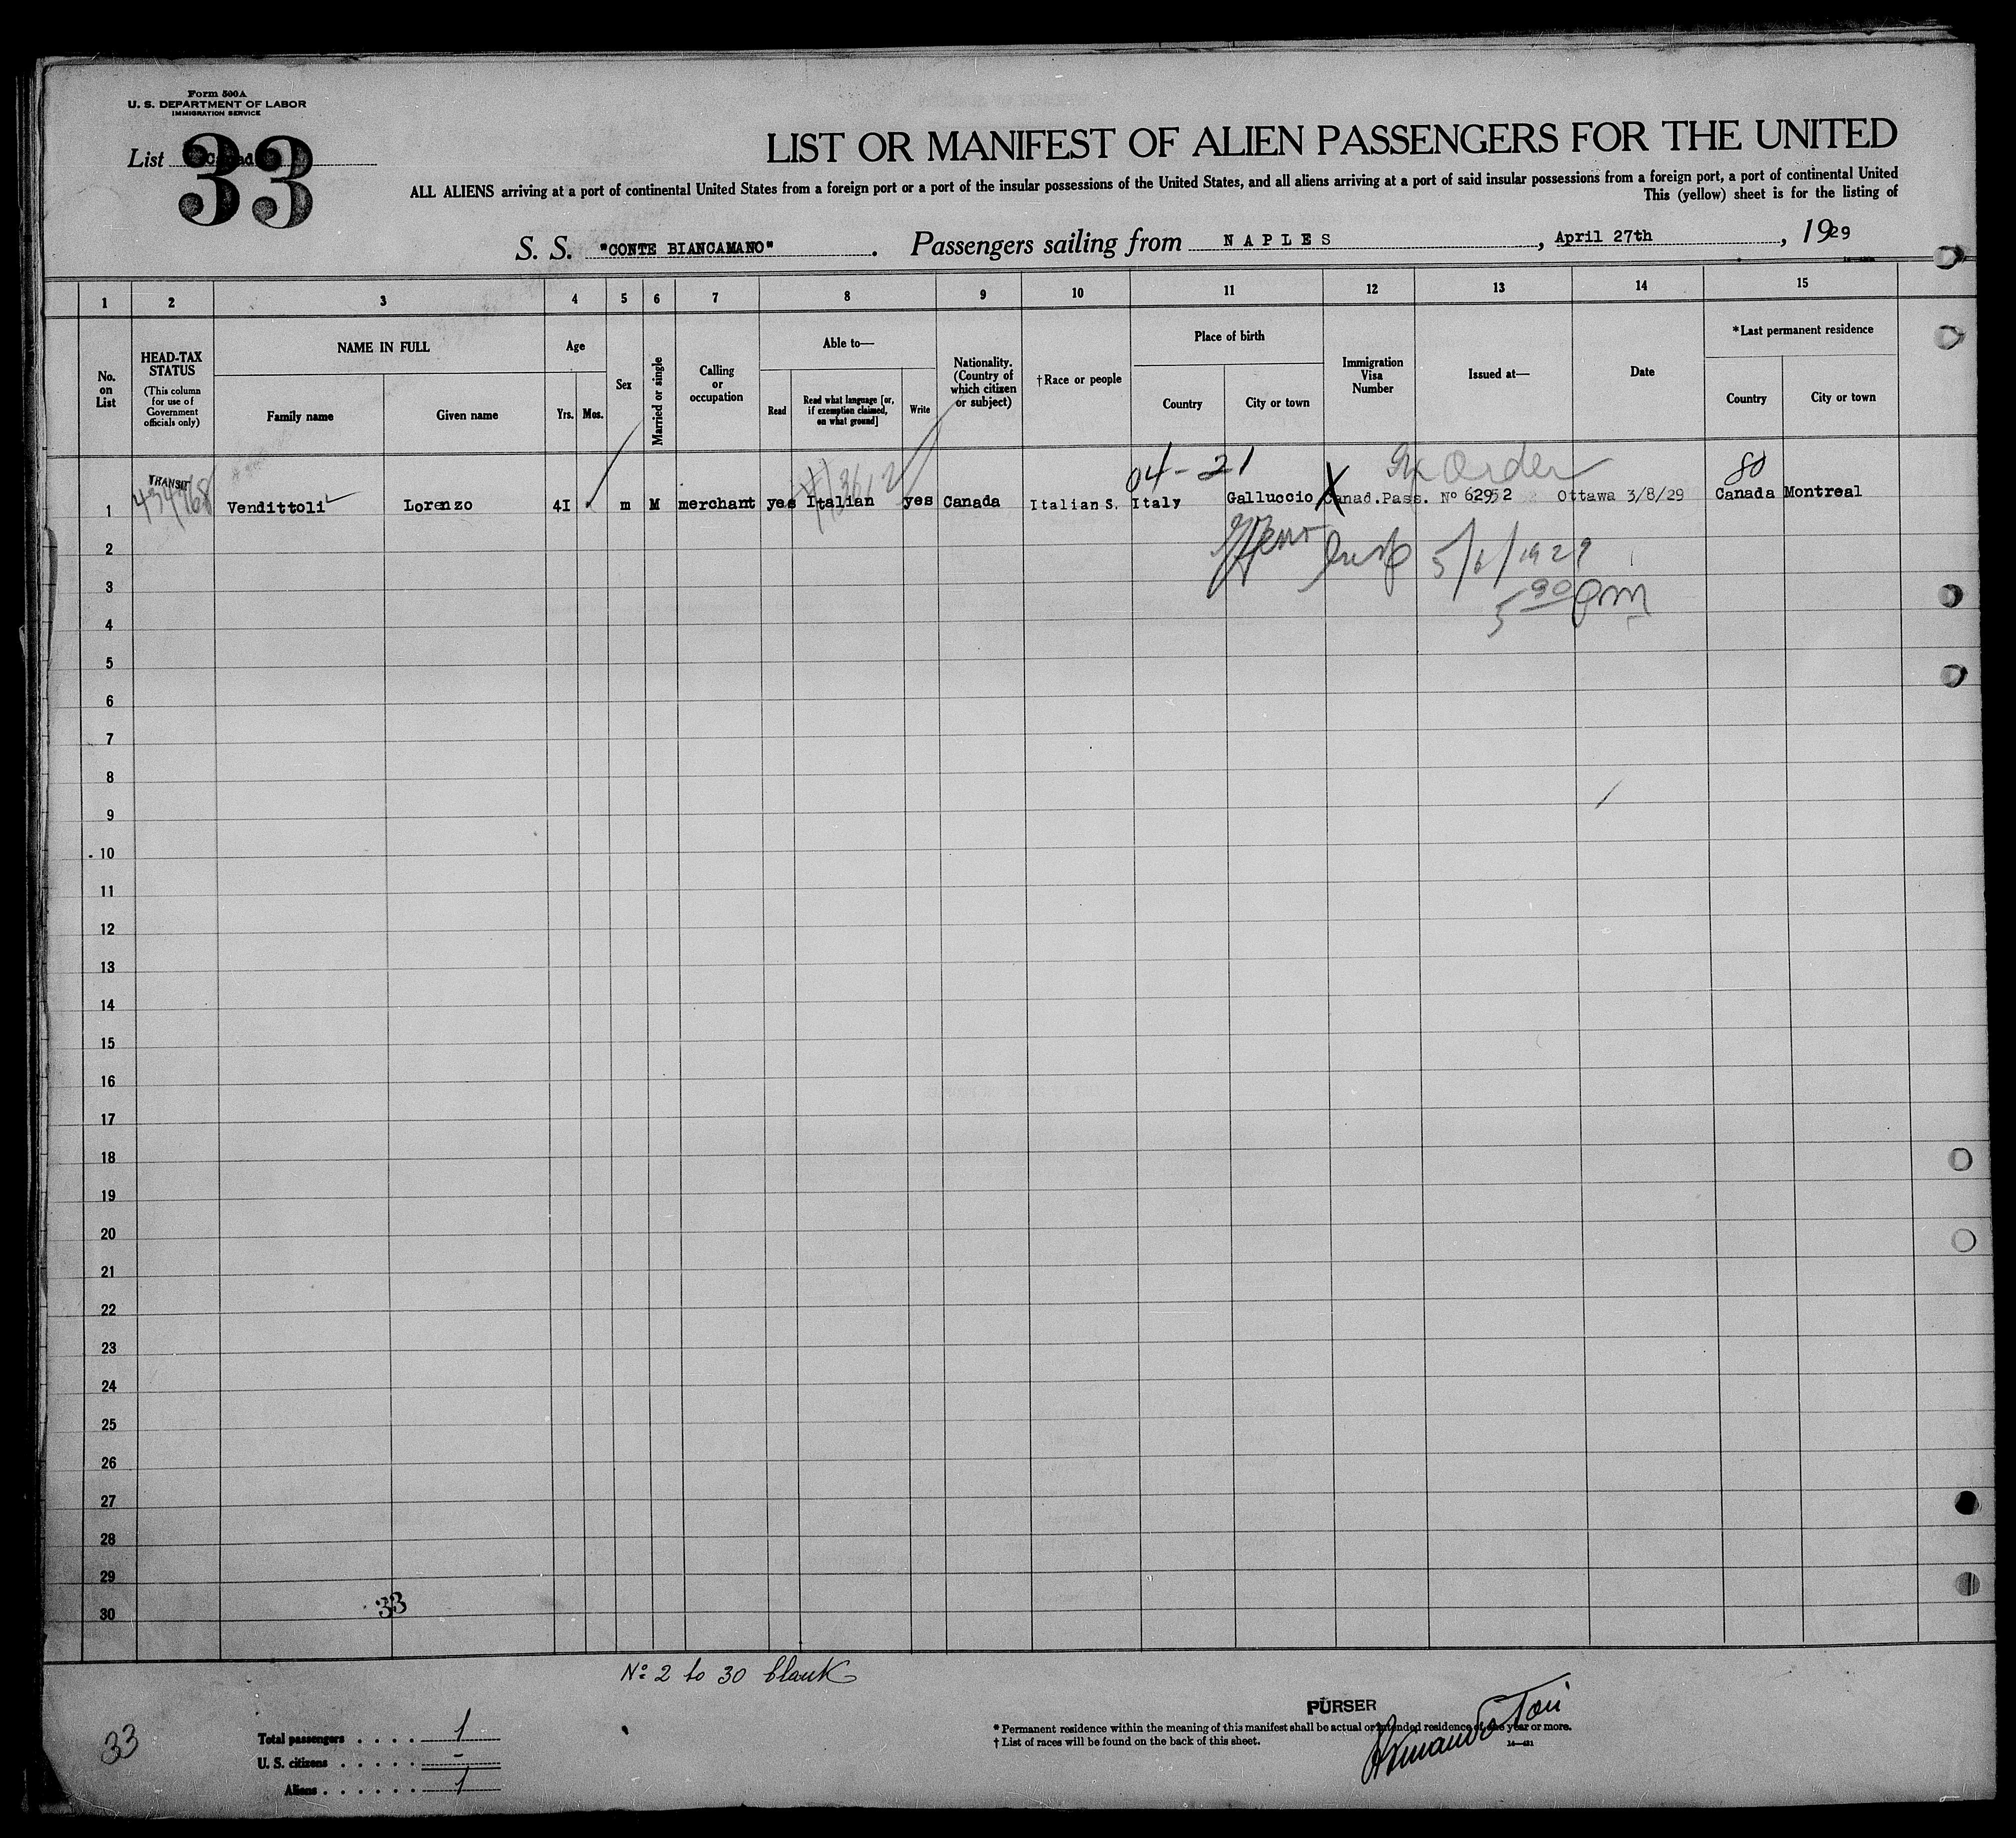 Form 500A
U. S. DEPARTMENT OF LABOR
IMMIGRATION SERVICE
List
33
LIST OR MANIFEST OF ALIEN PASSENGERS FOR THE UNITED
ALL ALIENS arriving at a port of continental United States from a foreign port or a port of the insular possessions of the United States, and all aliens arriving at a port of said insular possessions from a foreign port, a port of continental United
This (yellow) sheet is for the listing of
S. S. "CONTE BIANCAMANO". Passengers sailing from NAPLES, April 27th, 1929
1 2 3 4 5 6 7 8 9 10 11 12 13 14 15
No. on List
HEAD-TAX STATUS
(This column for use of Government officials only)
NAME IN FULL
Family name
Given name
Age
Yrs.
Mos.
Sex
Married or single
Calling or occupation
Able to—
Read
Read what language [or, if exemption claimed, on what ground]
Write
Nationality. (Country of which citizen or subject)
†Race or people
Place of birth
Country
City or town
Immigration Visa Number
Issued at—
Date
*Last permanent residence
Country
City or town
04-21
Order
80
TRANSIT
1 Vendittoli Lorenzo 4I m M merchant yes Italian yes Canada Italian S. Italy Galluccio Canad.Pass. Nº 62952 Ottawa 3/8/29 Canada Montreal
5/6/1929
pm
2
3
4
5
6
7
8
9
10
11
12
13
14
15
16
17
18
19
20
21
22
23
24
25
26
27
28
29
30
33
Nº 2 to 30 blank
33
Total passengers . . . . 1
U. S. citizens . . . . . -
Aliens . . . . . . 1
PURSER
* Permanent residence within the meaning of this manifest shall be actual or intended residence of one year or more.
† List of races will be found on the back of this sheet.